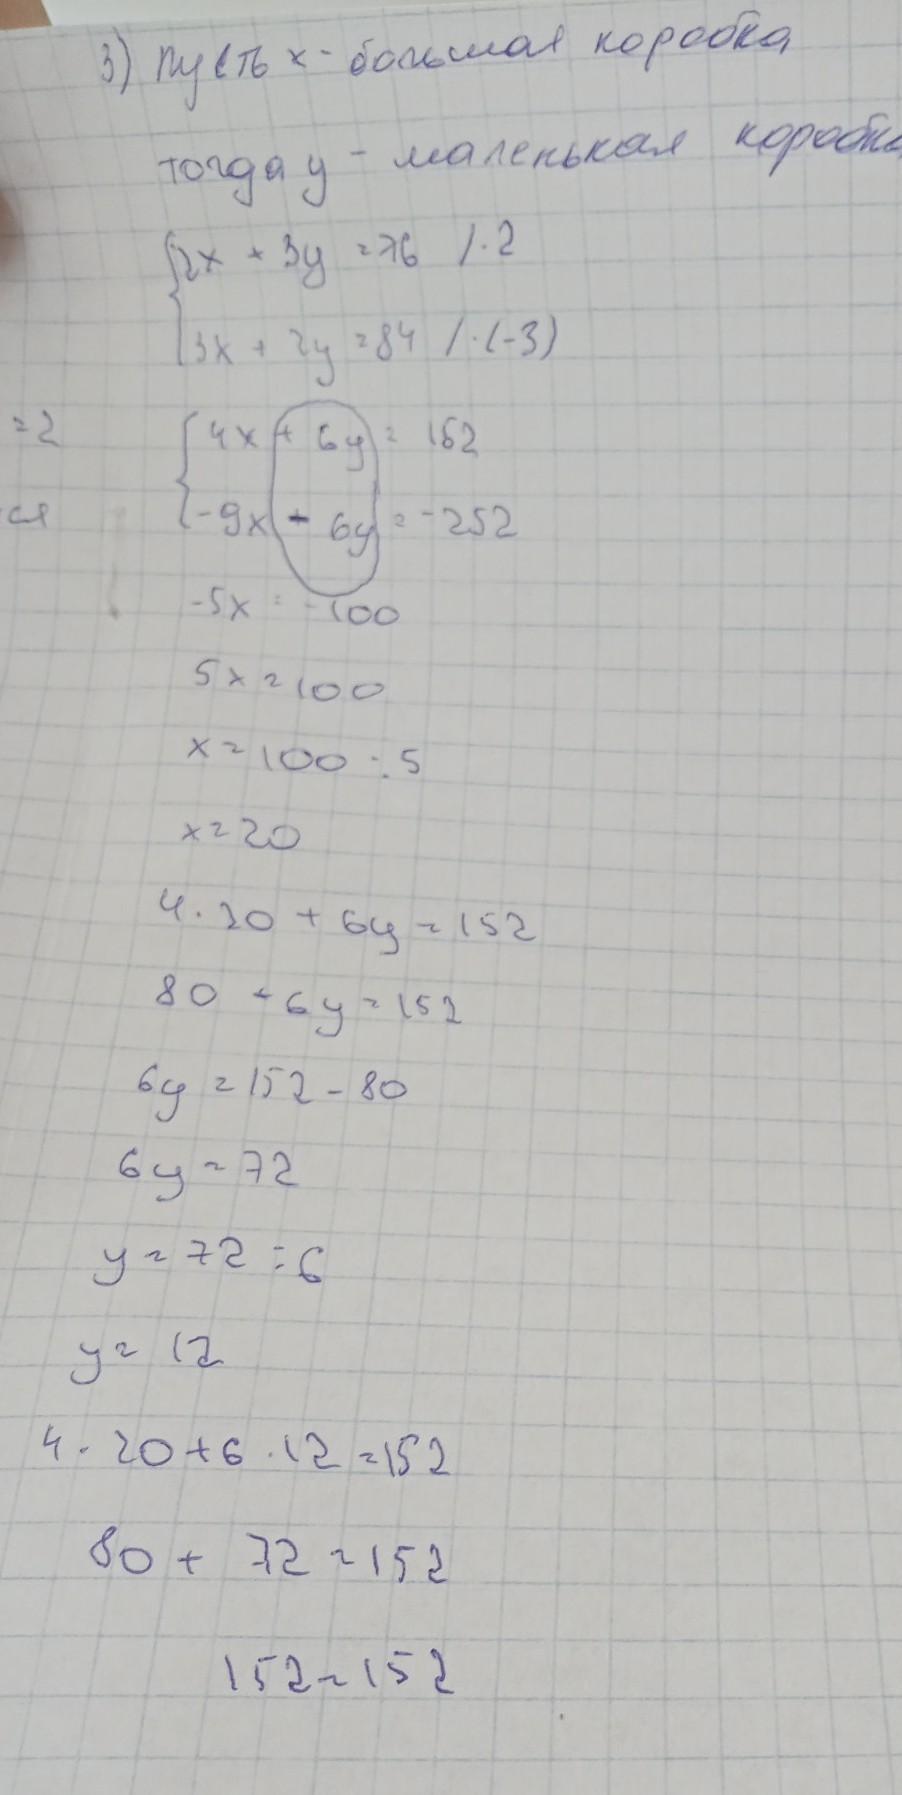 3) Пусть x - большая коробка
тогда y - маленькая коробка
{2x + 3y = 76 /·2
3x + 2y = 84 /·(-3)
=2
{4x + 6y = 152
ся
-9x - 6y = -252
-5x = -100
5x = 100
x = 100 : 5
x = 20
4·20 + 6y = 152
80 + 6y = 152
6y = 152 - 80
6y = 72
y = 72 : 6
y = 12
4·20+6·12=152
80 + 72 = 152
152 = 152